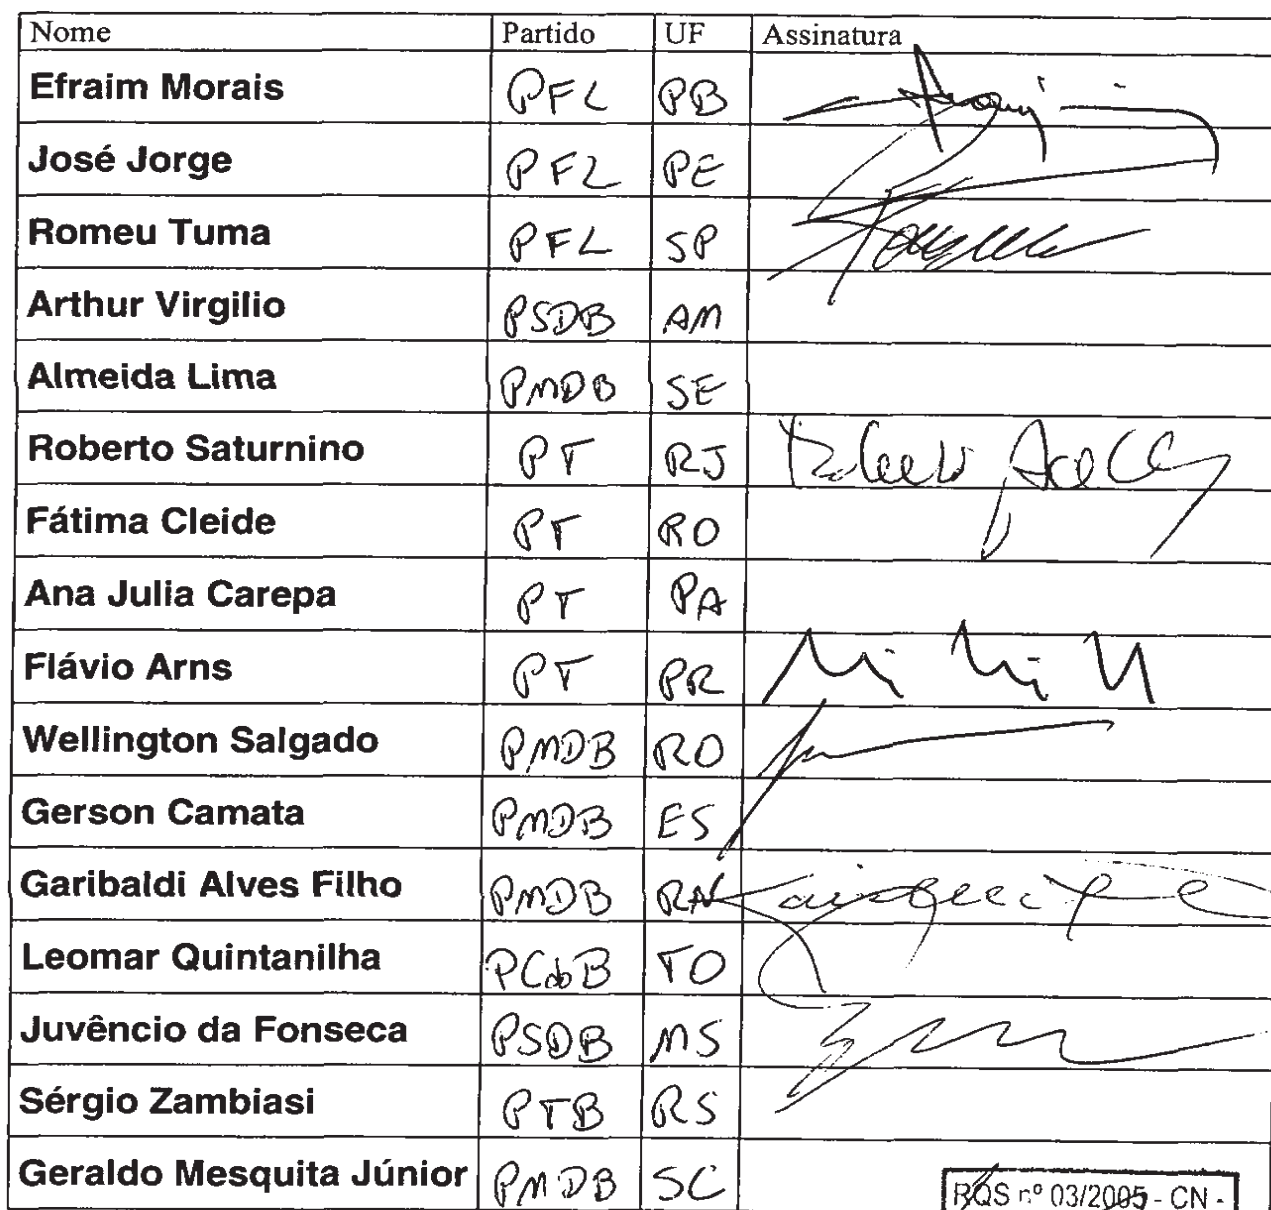 Nome Partido UF Assinatura
Efraim Morais PFL PB
José Jorge PFL PE
Romeu Tuma PFL SP
Arthur Virgilio PSDB AM
Almeida Lima PMDB SE
Roberto Saturnino PT RJ
Fátima Cleide PT RO
Ana Julia Carepa PT PA
Flávio Arns PT PR
Wellington Salgado PMDB RO
Gerson Camata PMDB ES
Garibaldi Alves Filho PMDB RN
Leomar Quintanilha PCdoB TO
Juvêncio da Fonseca PSDB MS
Sérgio Zambiasi PTB RS
Geraldo Mesquita Júnior PMDB SC
RQS nº 03/2005 - CN -